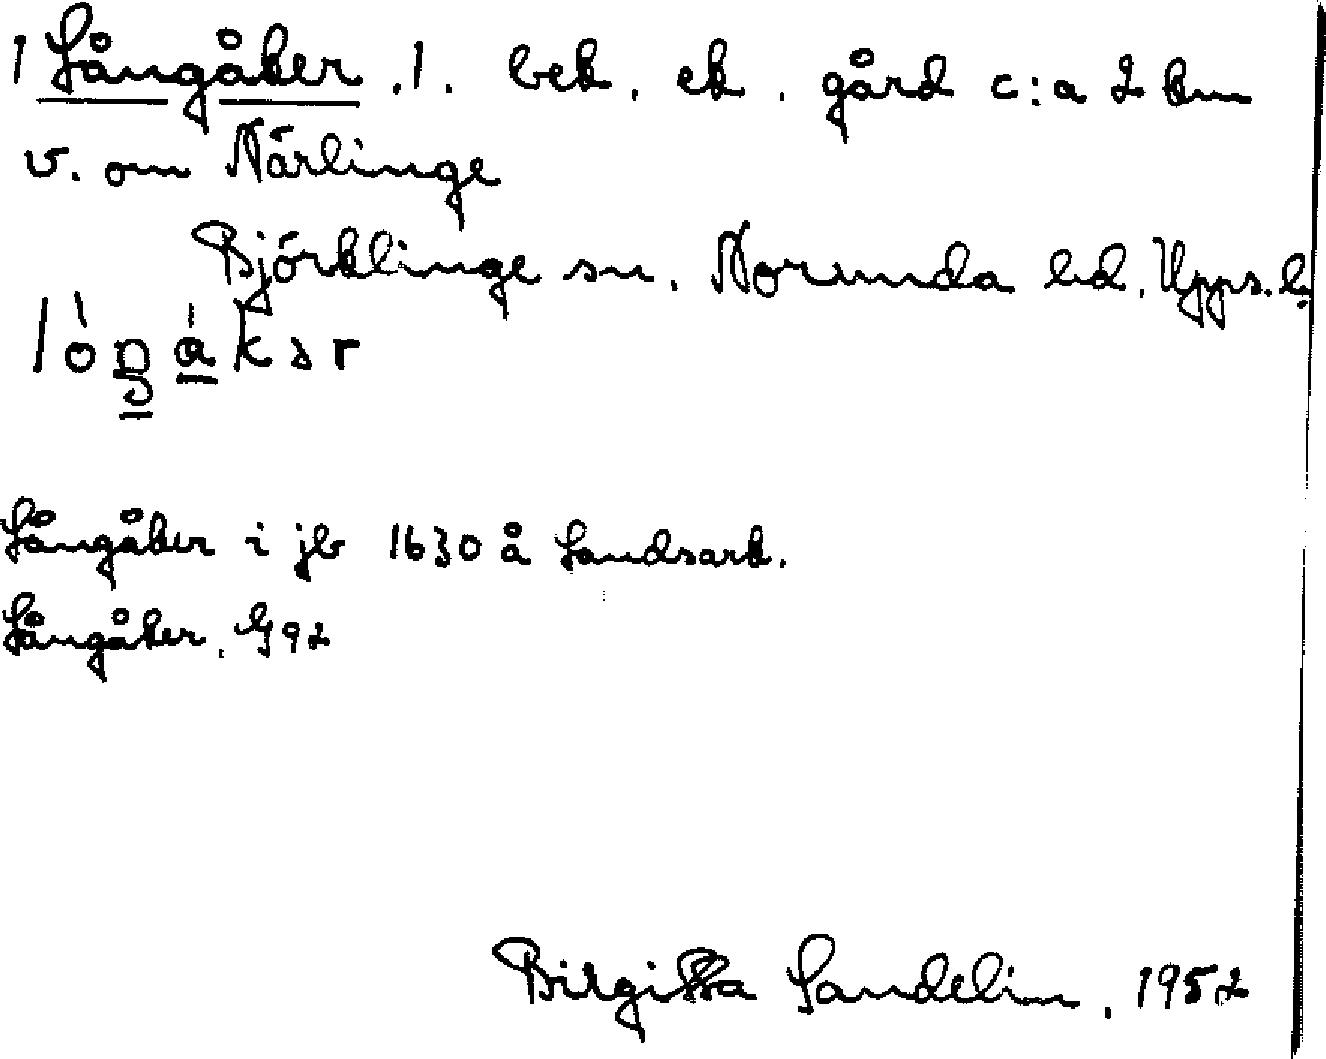 1 Långåker, 1. bek. ek. gård c:a 2 km
v. om Närlinge
Björklinge sn. Norunda hd. Upps. l.
Långåker i jb 1630 å Landsark.
Långåker, G 92
Birgitta Sandelin, 1952